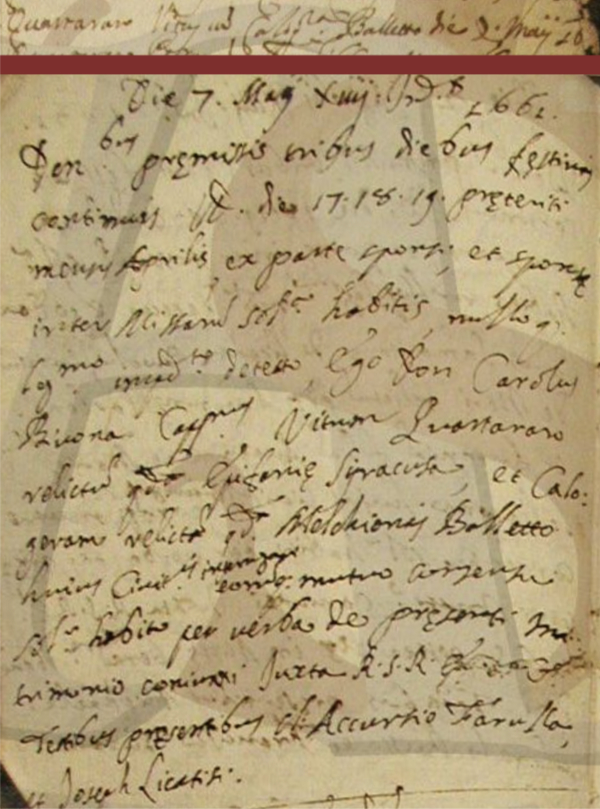 Quartararo Vitus cum Calog.ra Balletto die 7. Maij 16
Die 7. Maij xiiij Ind.s 1661.
Den bus premissis tribus diebus festivis
continuis die 17. 18. 19. preteriti
mensis Aprilis ex parte sponsi, et sponse
inter Missarũ sol.e habitis, nullo q.
leg.mo imped.to detecto, Ego Don Carolus
Bivona Capp.nus Vitum Quartararo
relictũ qd. Epifanie Syracusa, et Calo:
geram relictã qd. Melchioris Balletto
huius Civit.is mutuo consensu
sol.e habito per verba de presenti Ma:
trimonio coniunxi Juxta R. S. R.
Testibus presentibus Cl. Accurtio Farulla,
et Joseph Licatisi.